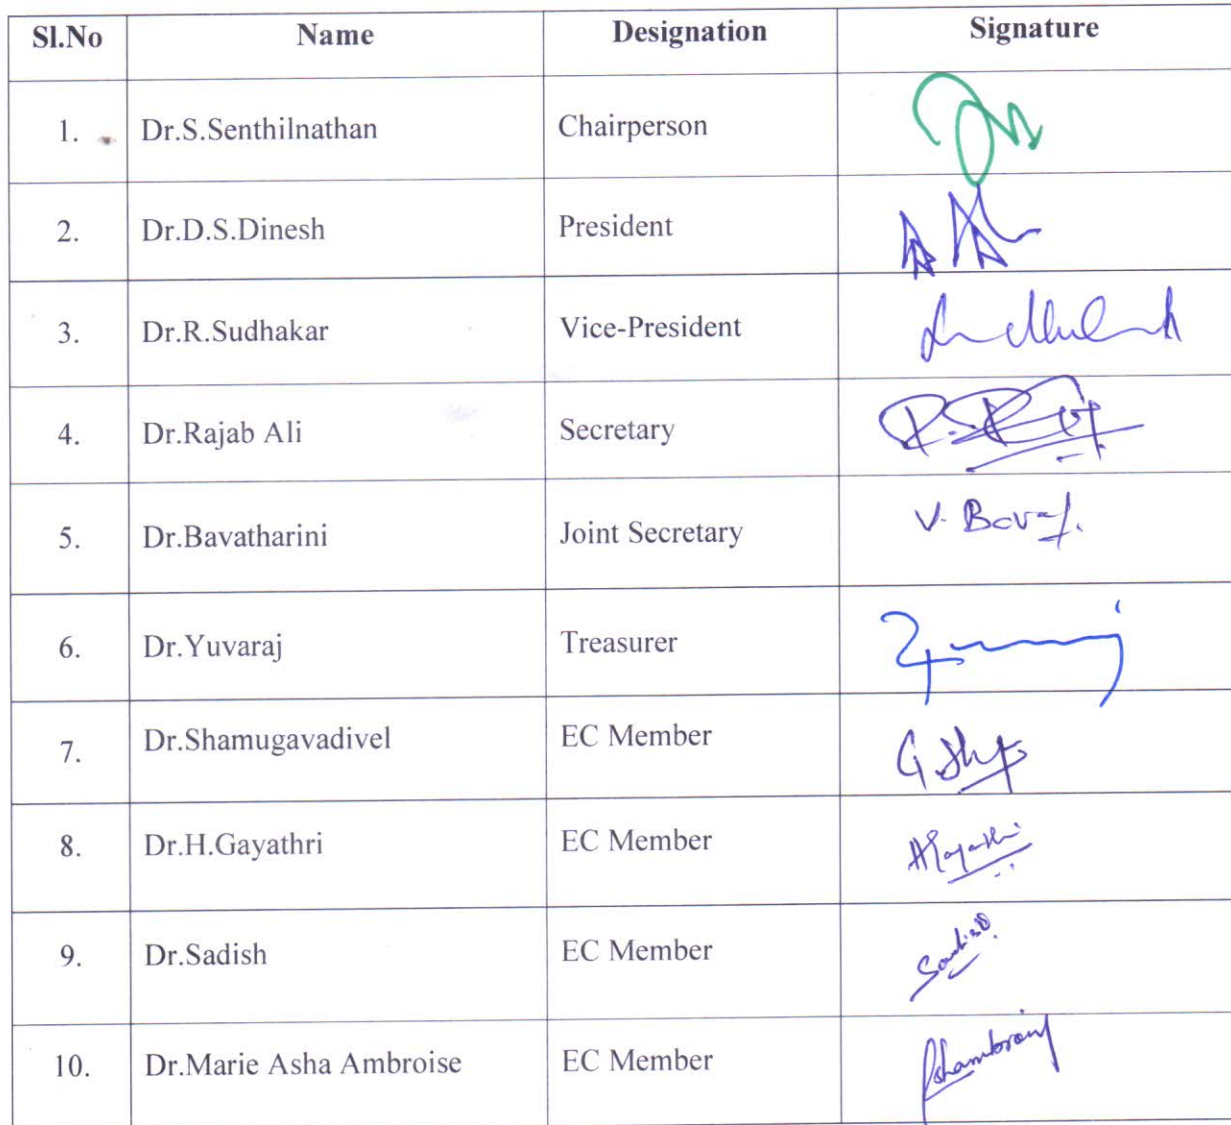 Sl.No Name Designation Signature
1. Dr.S.Senthilnathan Chairperson
2. Dr.D.S.Dinesh President
3. Dr.R.Sudhakar Vice-President
4. Dr.Rajab Ali Secretary
5. Dr.Bavatharini Joint Secretary
6. Dr.Yuvaraj Treasurer
7. Dr.Shamugavadivel EC Member
8. Dr.H.Gayathri EC Member
9. Dr.Sadish EC Member
10. Dr.Marie Asha Ambroise EC Member